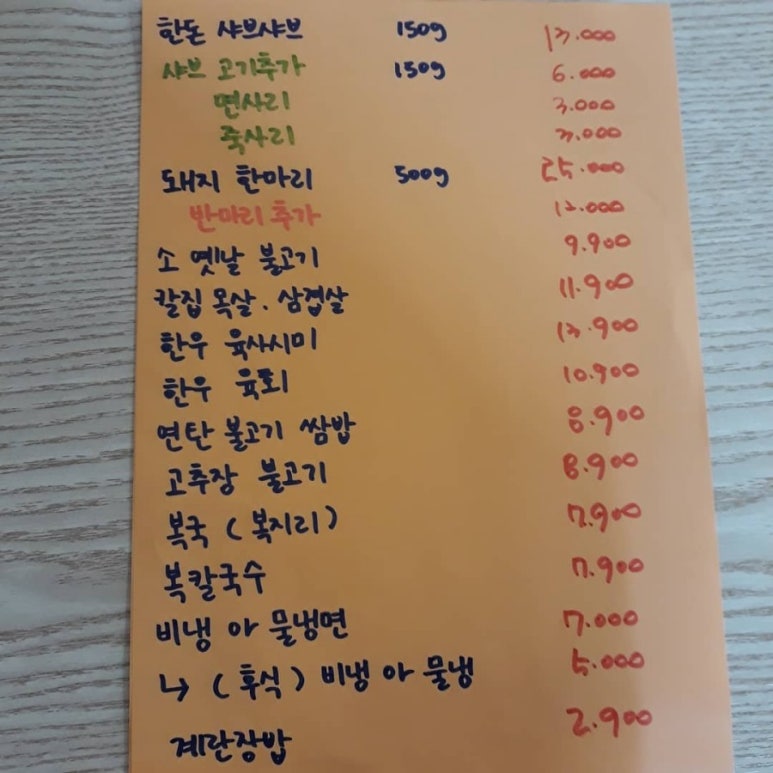 한돈 샤브샤브 150g 13.000
샤브 고기추가 150g 6.000
면사리 3.000
죽사리 3.000
돼지 한마리 500g 25.000
반마리 추가 12.000
소 옛날 불고기 9.900
칼집 목살. 삼겹살 11.900
한우 육사시미 13.900
한우 육회 10.900
연탄 불고기 쌈밥 8.900
고추장 불고기 8.900
복국 (복지리) 7.900
복칼국수 7.900
비냉 아 물냉면 7.000
↳ (후식) 비냉 아 물냉 5.000
계란장밥 2.900